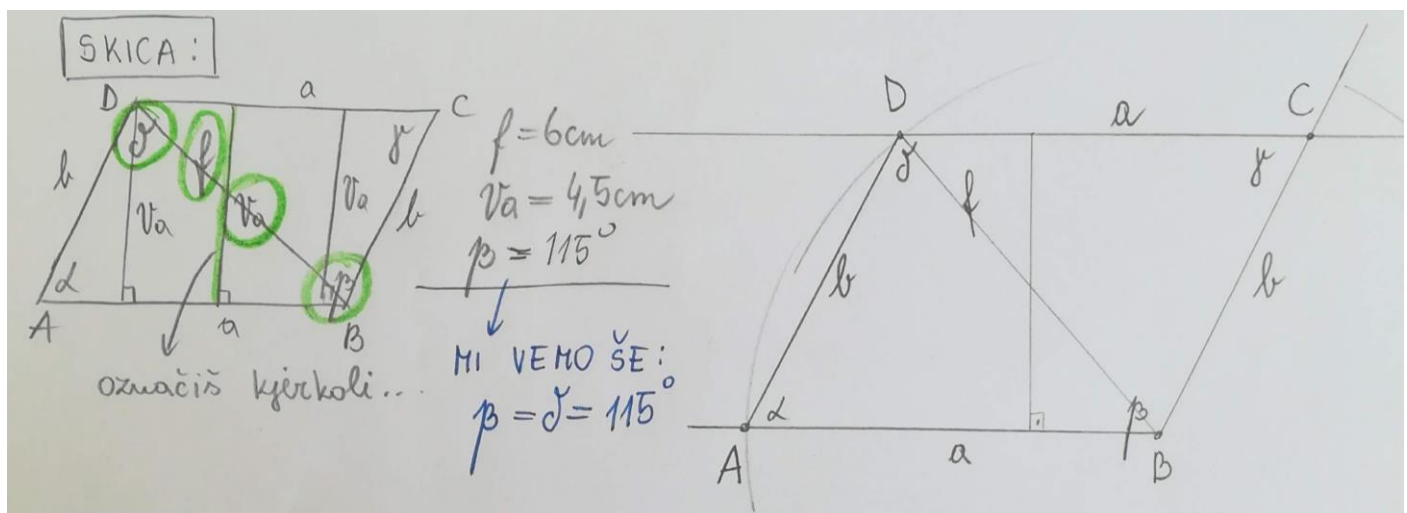 SKICA:
D
a
C
δ
f
γ
b
Va
Va
Va
b
α
β
A
a
B
označiš kjerkoli...
f = 6cm
Va = 4,5cm
β = 115°
MI VEMO ŠE:
β = δ = 115°
D
a
C
δ
f
γ
b
b
α
β
A
a
B